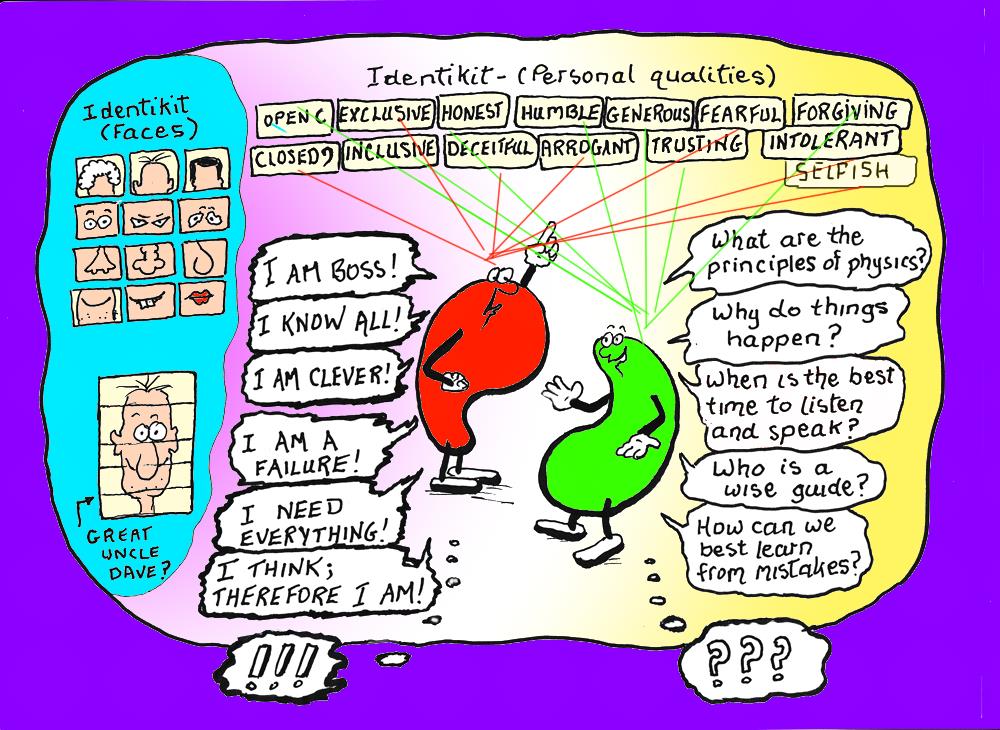 Identikit
(Faces)
GREAT
UNCLE
DAVE?
Identikit - (Personal qualities)
OPEN C EXCLUSIVE HONEST HUMBLE GENEROUS FEARFUL FORGIVING
CLOSED? INCLUSIVE DECEITFUL ARROGANT TRUSTING INTOLERANT
SELFISH
I AM BOSS!
I KNOW ALL!
I AM CLEVER!
I AM A
FAILURE!
I NEED
EVERYTHING!
I THINK;
THEREFORE I AM!
!!!
What are the
principles of physics?
Why do things
happen?
When is the best
time to listen
and speak?
Who is a
wise guide?
How can we
best learn
from mistakes?
???